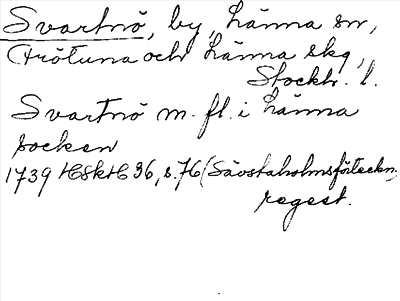 Svartnö, by, Länna sn,
Frötuna och Länna skg,
Stockh. l.
Svartnö m. fl. i Länna
socken
1739 HSkH 36, s. 76 (Sävstaholmsförteckn.,
regest.